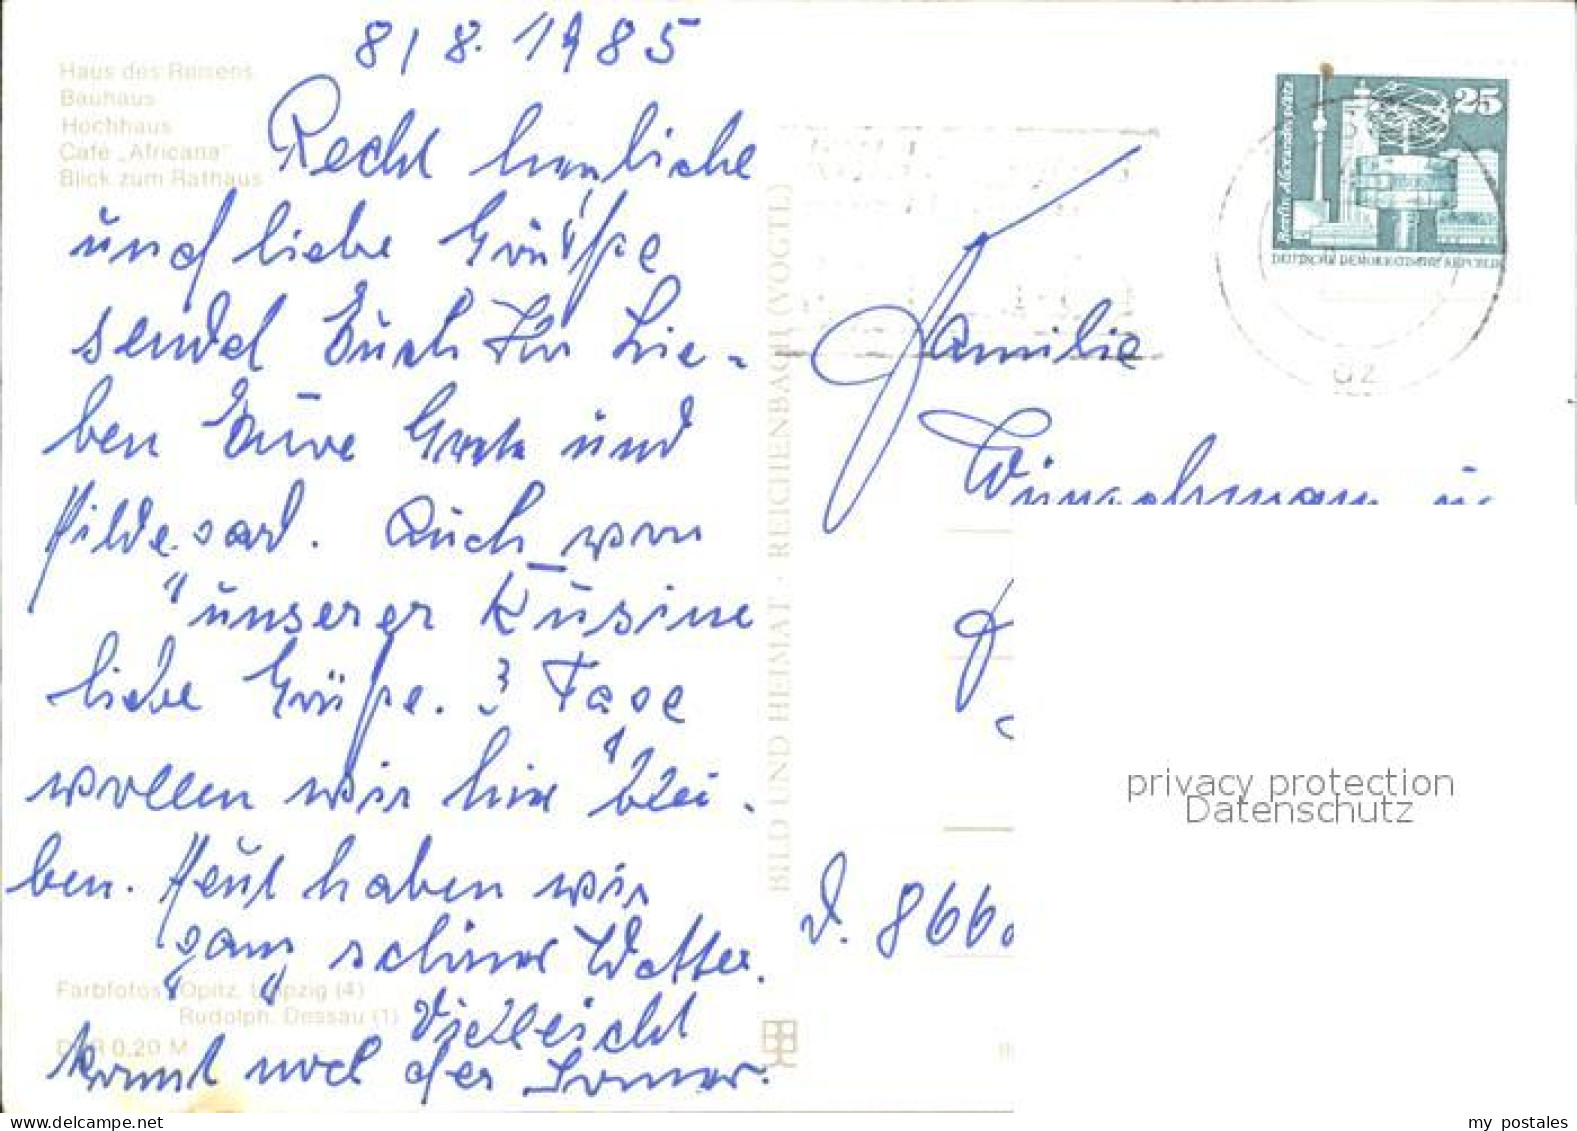 8/8. 1985
Haus des Reisens
Bauhaus
Hochhaus
Café „Africana"
Blick zum Rathaus
Recht herzliche
und liebe Grüße
sendet Euch Ihr Lie-
ben Eure Grete und
Hildegard. Auch von
unserer Kusine
liebe Grüße. 3 Tage
wollen wir hier blei-
ben. Heut haben wir
ganz schönes Wetter.
Vielleicht
kommt noch der Sommer.
Farbfotos: Opitz, Leipzig (4)
Rudolph, Dessau (1)
DDR 0,20 M
BILD UND HEIMAT · REICHENBACH (VOGTL)
25
Berlin, Alexanderplatz
DEUTSCHE DEMOKRATISCHE REPUBLIK
Familie
Wünschmann u
D. 866
privacy protection
Datenschutz
www.delcampe.net
my_postales